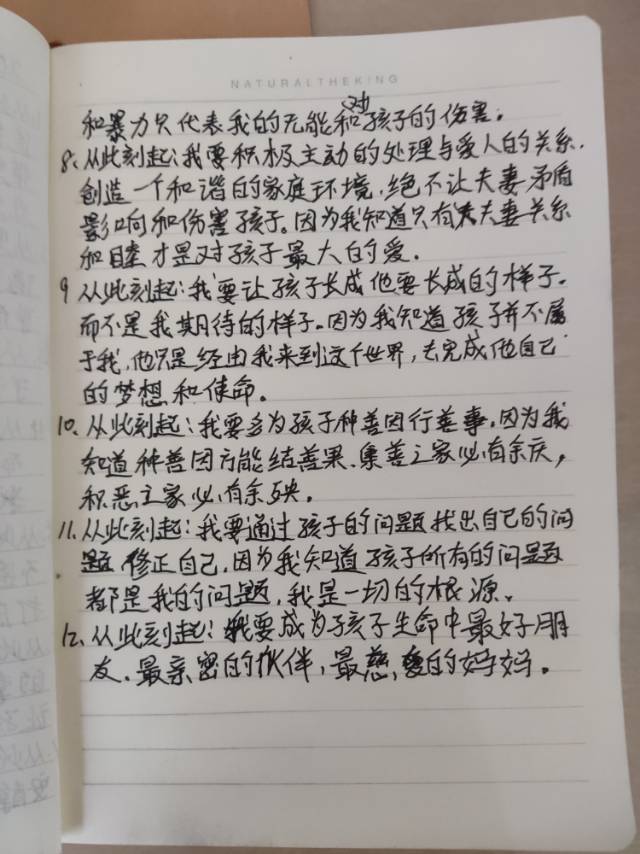 NATURALTHEKING
和暴力只代表我的无能和对孩子的伤害。
8、从此刻起：我要积极主动的处理与爱人的关系.
创造一个和谐的家庭环境，绝不让夫妻矛盾
影响和伤害孩子。因为我知道只有夫妻关系
和睦才是对孩子最大的爱.
9 从此刻起：我要让孩子长成他要长成的样子.
而不是我期待的样子。因为我知道孩子并不属
于我，他只是经由我来到这个世界，去完成他自己
的梦想和使命。
10、从此刻起：我要多为孩子种善因行善事，因为我
知道种善因方能结善果.集善之家必有余庆，
积恶之家必有余殃。
11、从此刻起：我要通过孩子的问题找出自己的问
题修正自己，因为我知道孩子所有的问题
都是我的问题，我是一切的根源。
12、从此刻起：我要成为孩子生命中最好朋
友、最亲密的伙伴，最慈爱的妈妈。